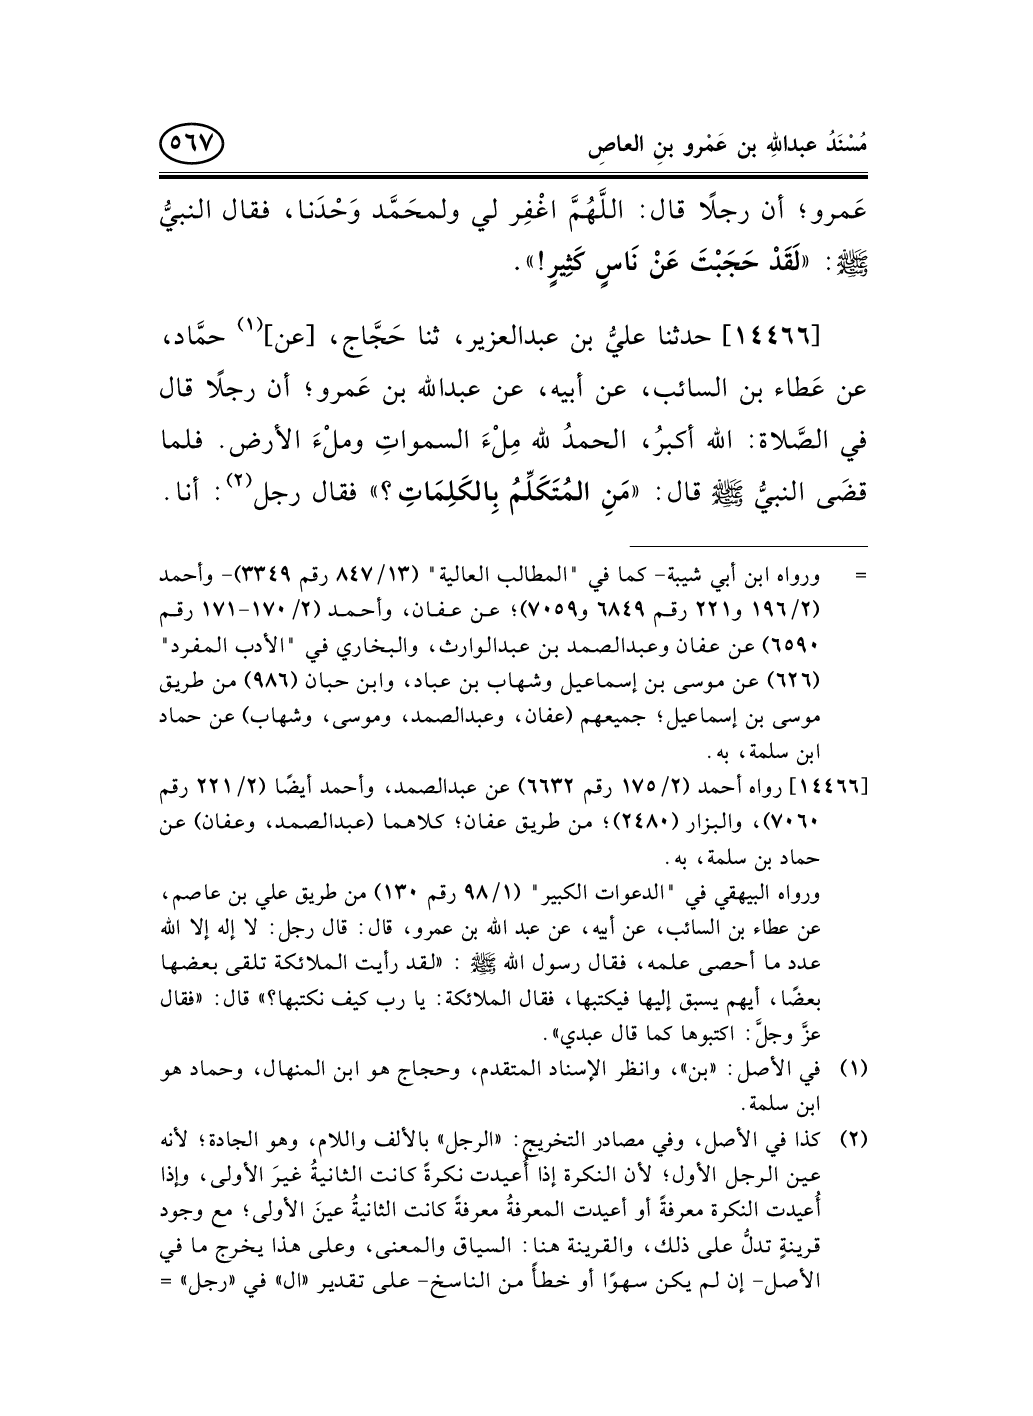 مُسْنَدُ عبدالله بن عَمْرو بنِ العاصِ ٥٦٧
عَمرو؛ أن رجلًا قال: اللَّهُمَّ اغْفِر لي ولمحَمَّد وَحْدَنا، فقال النبيُّ
ﷺ: «لَقَدْ حَجَبْتَ عَنْ نَاسٍ كَثِيرٍ!».
[١٤٤٦٦] حدثنا عليُّ بن عبدالعزير، ثنا حَجَّاج، [عن](١) حمَّاد،
عن عَطاء بن السائب، عن أبيه، عن عبدالله بن عَمرو؛ أن رجلًا قال
في الصَّلاة: الله أكبرُ، الحمدُ لله مِلْءَ السمواتِ وملْءَ الأرض. فلما
قضَى النبيُّ ﷺ قال: «مَنِ المُتَكَلِّمُ بِالكَلِمَاتِ؟» فقال رجل(٢): أنا.
= ورواه ابن أبي شيبة- كما في "المطالب العالية" (١٣/ ٨٤٧ رقم ٣٣٤٩)- وأحمد
(٢/ ١٩٦ و٢٢١ رقم ٦٨٤٩ و٧٠٥٩)؛ عن عفان، وأحمد (٢/ ١٧٠-١٧١ رقم
٦٥٩٠) عن عفان وعبدالصمد بن عبدالوارث، والبخاري في "الأدب المفرد"
(٦٢٦) عن موسى بن إسماعيل وشهاب بن عباد، وابن حبان (٩٨٦) من طريق
موسى بن إسماعيل؛ جميعهم (عفان، وعبدالصمد، وموسى، وشهاب) عن حماد
ابن سلمة، به.
[١٤٤٦٦] رواه أحمد (٢/ ١٧٥ رقم ٦٦٣٢) عن عبدالصمد، وأحمد أيضًا (٢/ ٢٢١ رقم
٧٠٦٠)، والبزار (٢٤٨٠)؛ من طريق عفان؛ كلاهما (عبدالصمد، وعفان) عن
حماد بن سلمة، به.
ورواه البيهقي في "الدعوات الكبير" (١/ ٩٨ رقم ١٣٠) من طريق علي بن عاصم،
عن عطاء بن السائب، عن أبيه، عن عبد الله بن عمرو، قال: قال رجل: لا إله إلا الله
عدد ما أحصى علمه، فقال رسول الله ﷺ : «لقد رأيت الملائكة تلقى بعضها
بعضًا، أيهم يسبق إليها فيكتبها، فقال الملائكة: يا رب كيف نكتبها؟» قال: «فقال
عزَّ وجلَّ: اكتبوها كما قال عبدي».
(١) في الأصل: «بن»، وانظر الإسناد المتقدم، وحجاج هو ابن المنهال، وحماد هو
ابن سلمة.
(٢) كذا في الأصل، وفي مصادر التخريج: «الرجل» بالألف واللام، وهو الجادة؛ لأنه
عين الرجل الأول؛ لأن النكرة إذا أُعيدت نكرةً كانت الثانيةُ غيرَ الأولى، وإذا
أُعيدت النكرة معرفةً أو أعيدت المعرفةُ معرفةً كانت الثانيةُ عينَ الأولى؛ مع وجود
قرينةٍ تدلُّ على ذلك، والقرينة هنا: السياق والمعنى، وعلى هذا يخرج ما في
الأصل- إن لم يكن سهوًا أو خطأً من الناسخ- على تقدير «ال» في «رجل» =